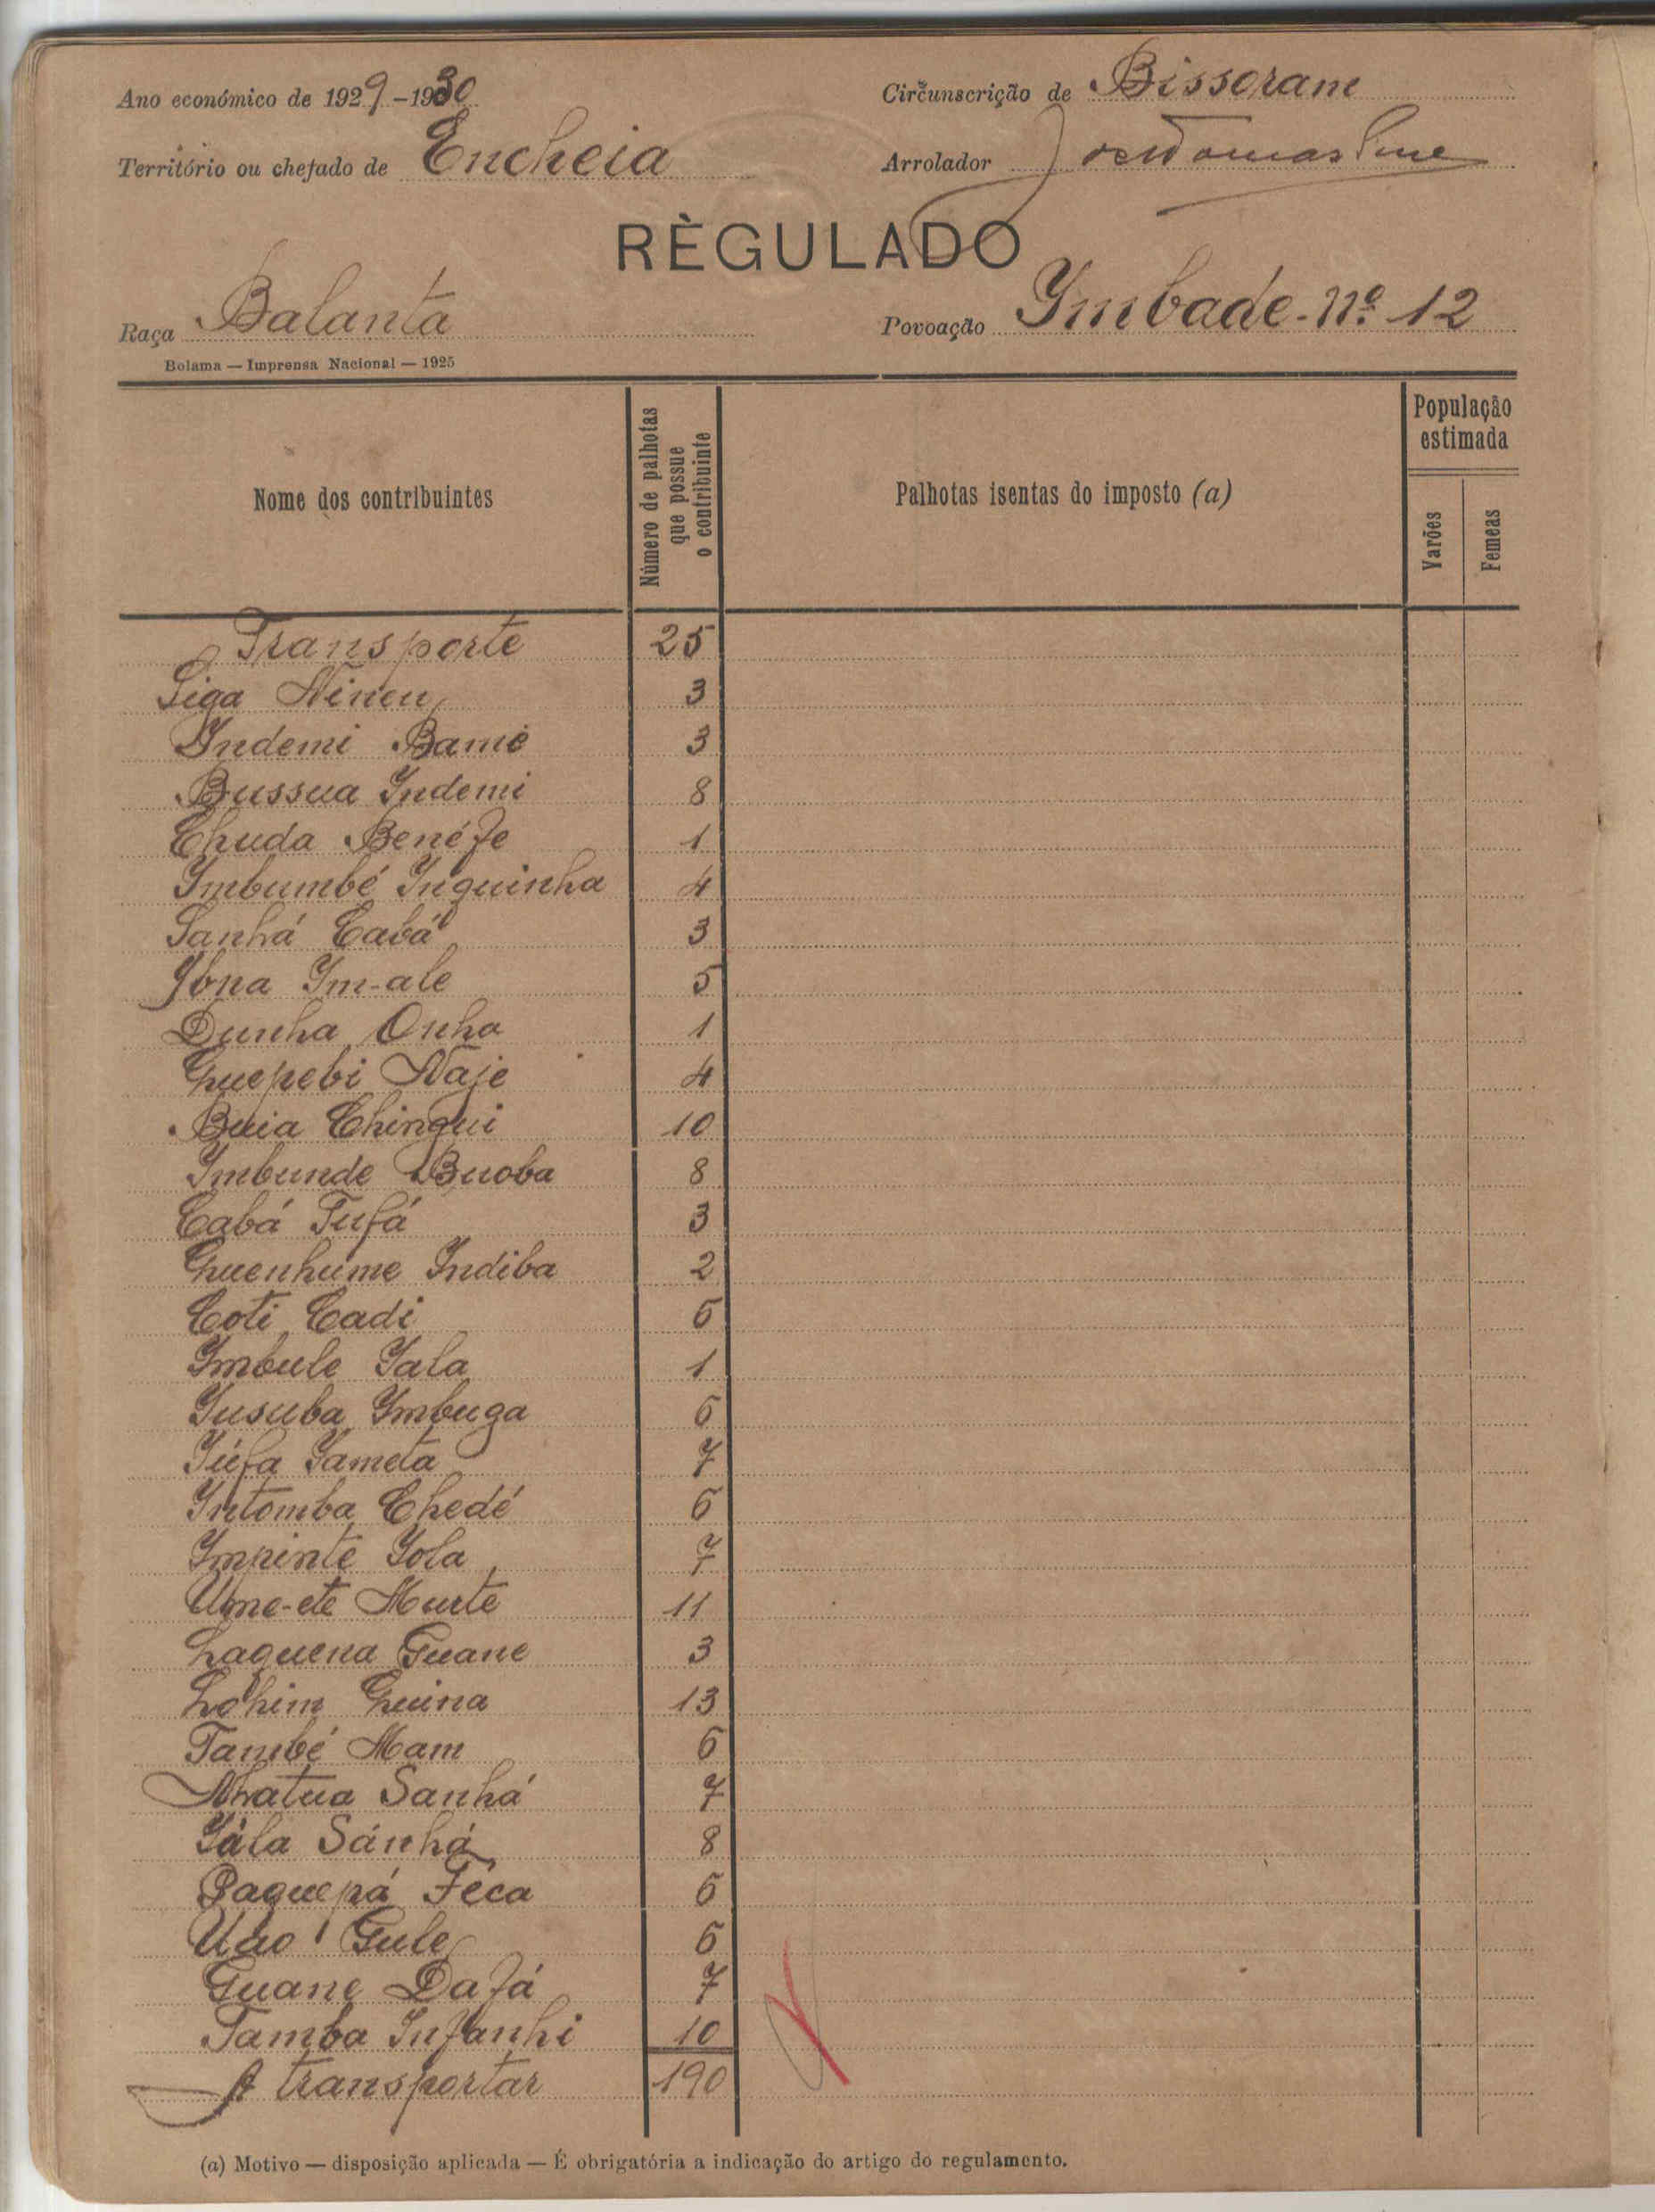 Ano económico de 1929-1930
Circunscrição de Bissoram
Território ou chefado de Encheia
Arrolador
RÈGULADO
Raça Balanta
Povoação Ymbade-nº 12
Bolama — Imprensa Nacional — 1925
Nome dos contribuintes
Número de palhotas
que possue
o contribuinte
Palhotas isentas do imposto (a)
População
estimada
Varões
Femeas
Transporte 25
Siga Nineu 3
Yndemi Bamé 3
Bussua Yndemi 8
Chuda Benéfe 1
Ymbumbé Ynquinha 4
Sanhá Cabá 3
Ybna Ym-ale 5
Dunha Onha 1
Guepebi Naje 4
Buia Chingui 10
Ymbunde Buoba 8
Cabá Tufá 3
Guenhume Yndiba 2
Coti Cadi 6
Ymbule Yala 1
Yusuba Ymbuga 6
Yúfa Yameta 7
Yntomba Chedé 6
Ympinte Yola 7
Ume-ete Murte 11
Laquena Guane 3
Lohim Guina 13
També Mam 6
Nhatua Sanhá 7
Yála Sánhá 8
Paquepá Féca 6
Udo Gule 6
Guane Dafá 7
Tamba Ynfanhi 10
A transportar 190
(a) Motivo — disposição aplicada — É obrigatória a indicação do artigo do regulamento.